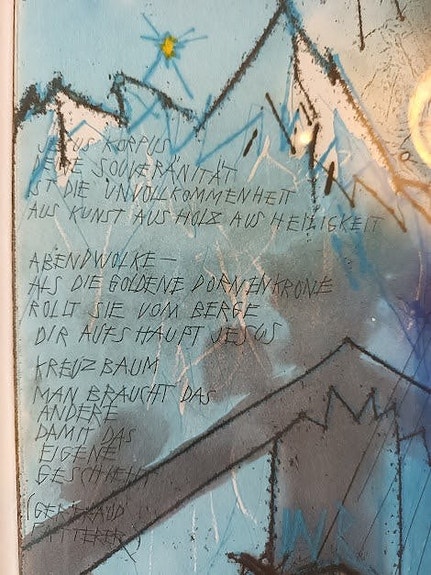 JESUS KORPUS
DEINE SOUVERÄNITÄT
IST DIE UNVOLLKOMMENHEIT
AUS KUNST AUS HOLZ AUS HEILIGKEIT
ABENDWOLKE —
ALS DIE GOLDENE DORNENKRONE
ROLLT SIE VOM BERGE
DIR AUFS HAUPT JESUS
KREUZBAUM
MAN BRAUCHT DAS
ANDERE
DAMIT DAS
EIGENE
GESCHIEHT
(GERTRAUD